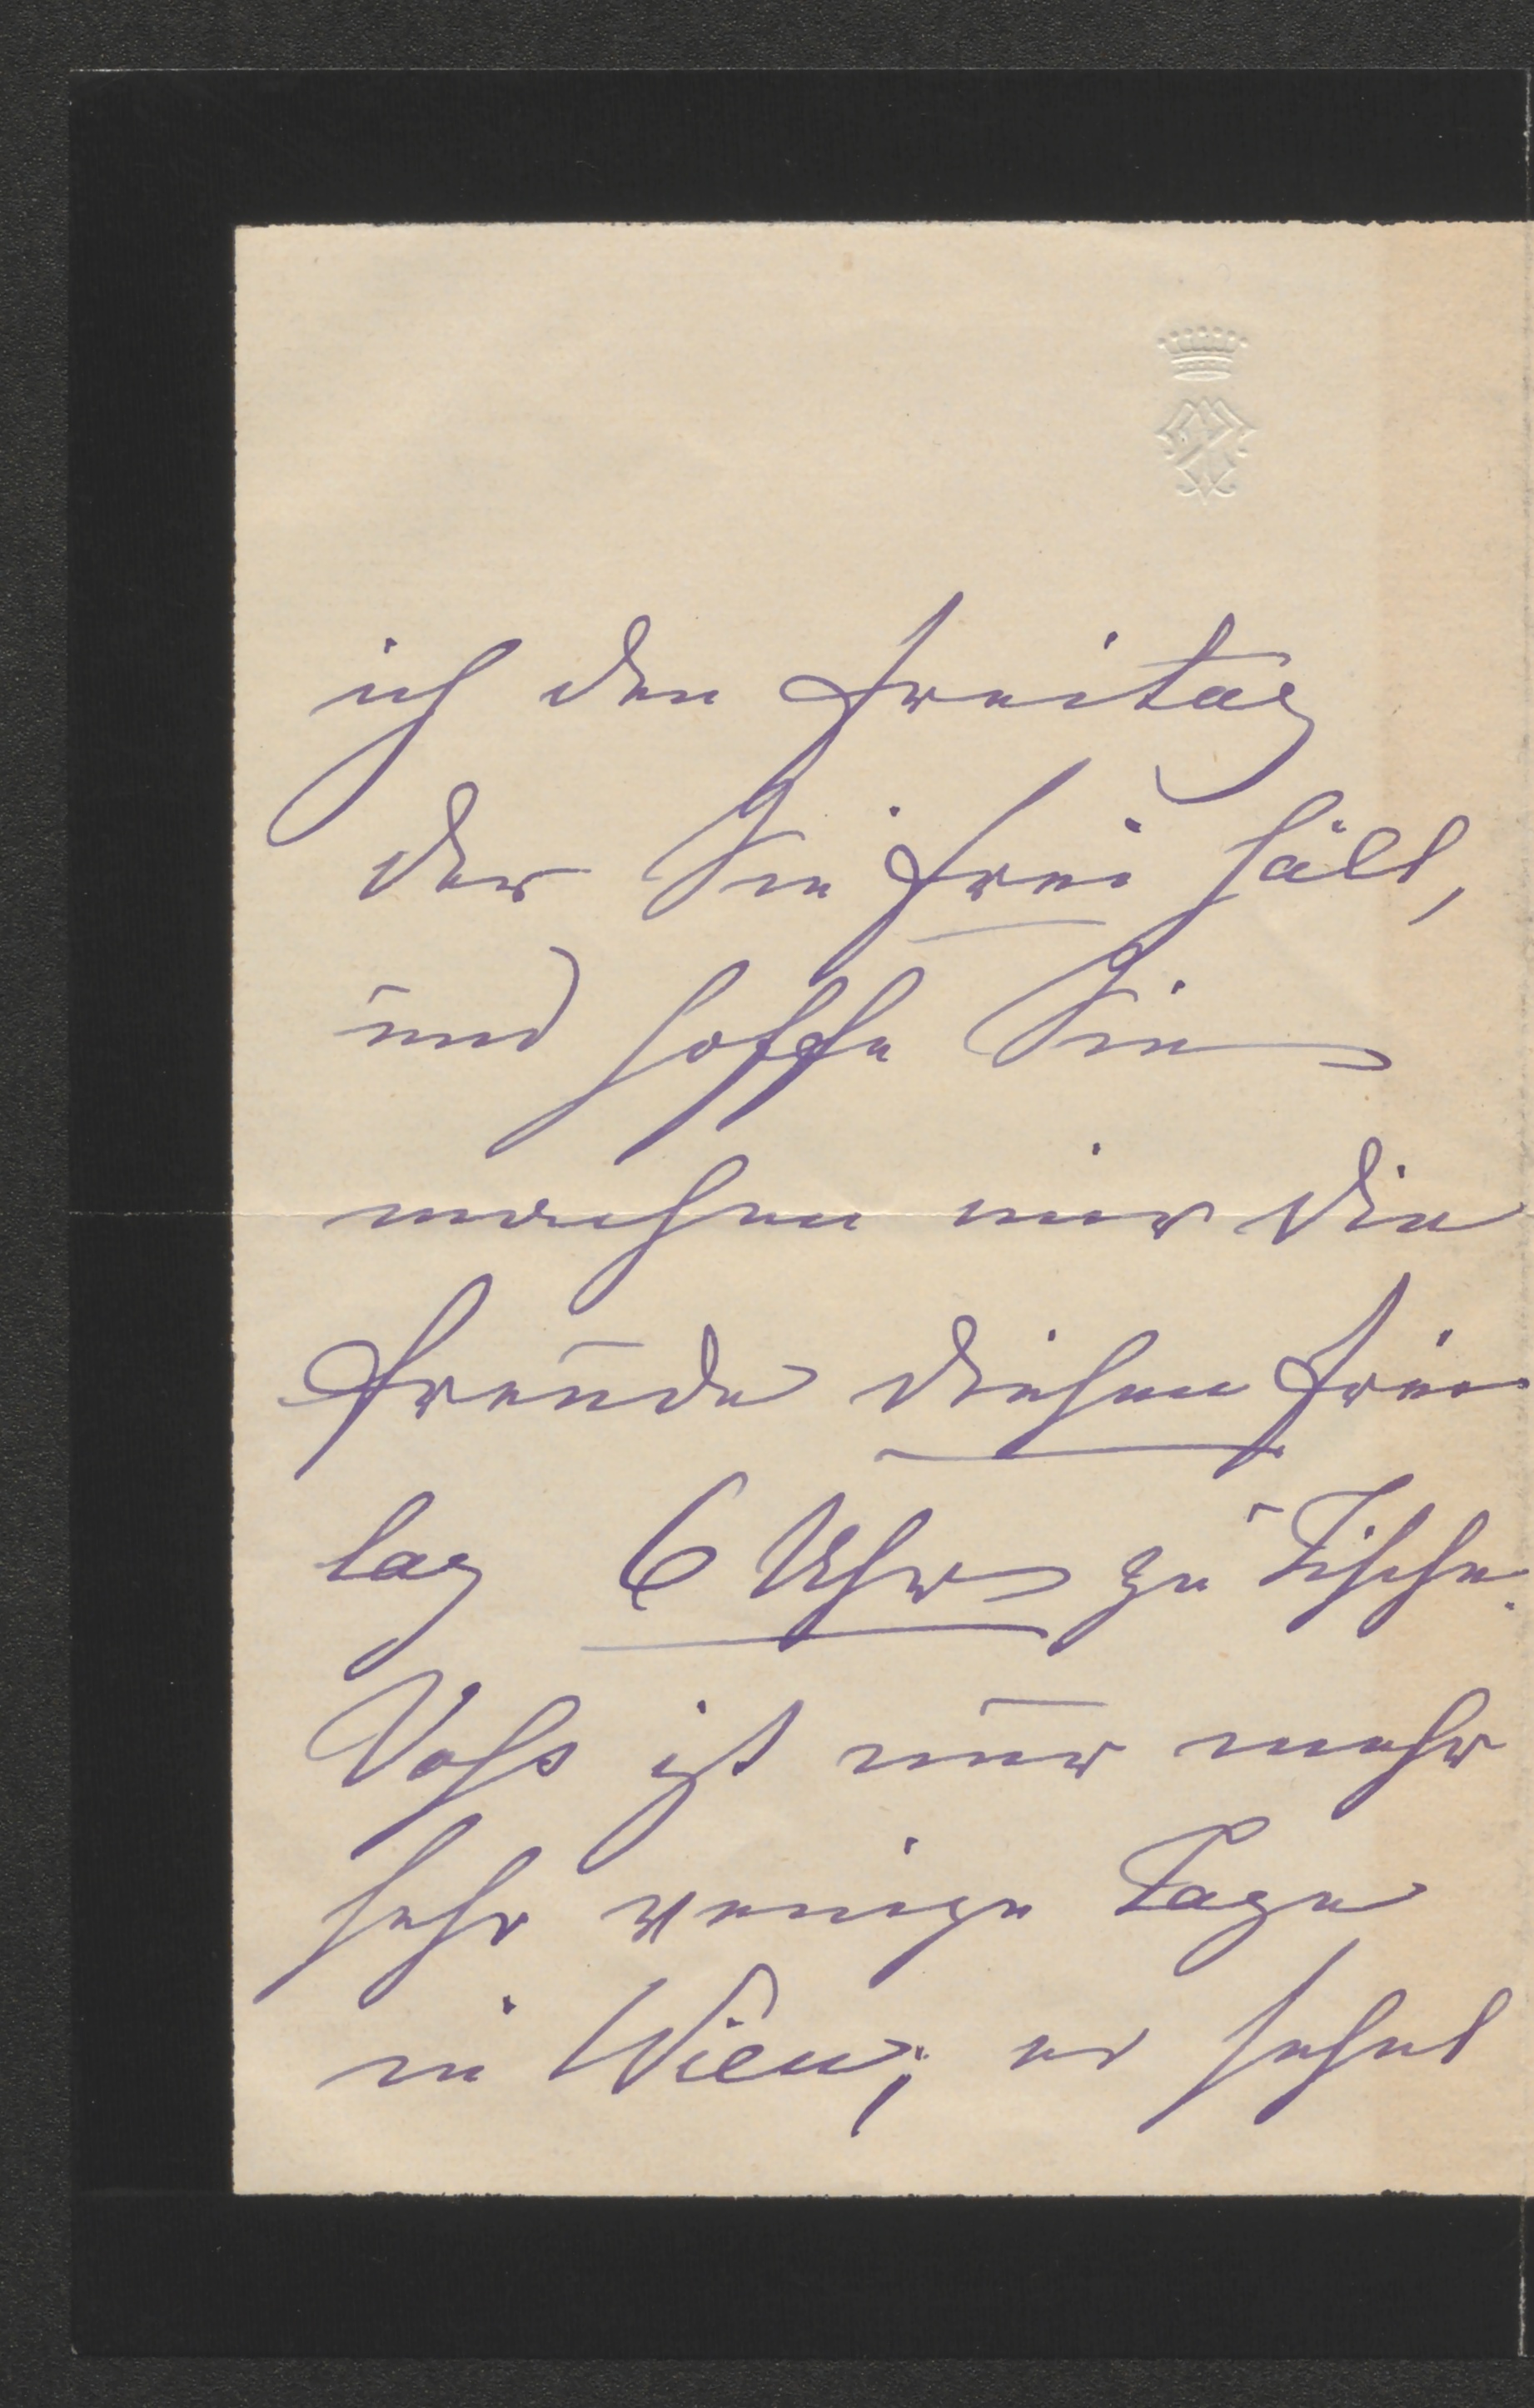 ich den Freitag
der Sie frei hält,
und hoffe Sie
machen mir die
Freude diesen Frei
tag 6 Uhr zu Tische.
Voss ist nur mehr
sehr wenige Tage
in Wien; er sehnt